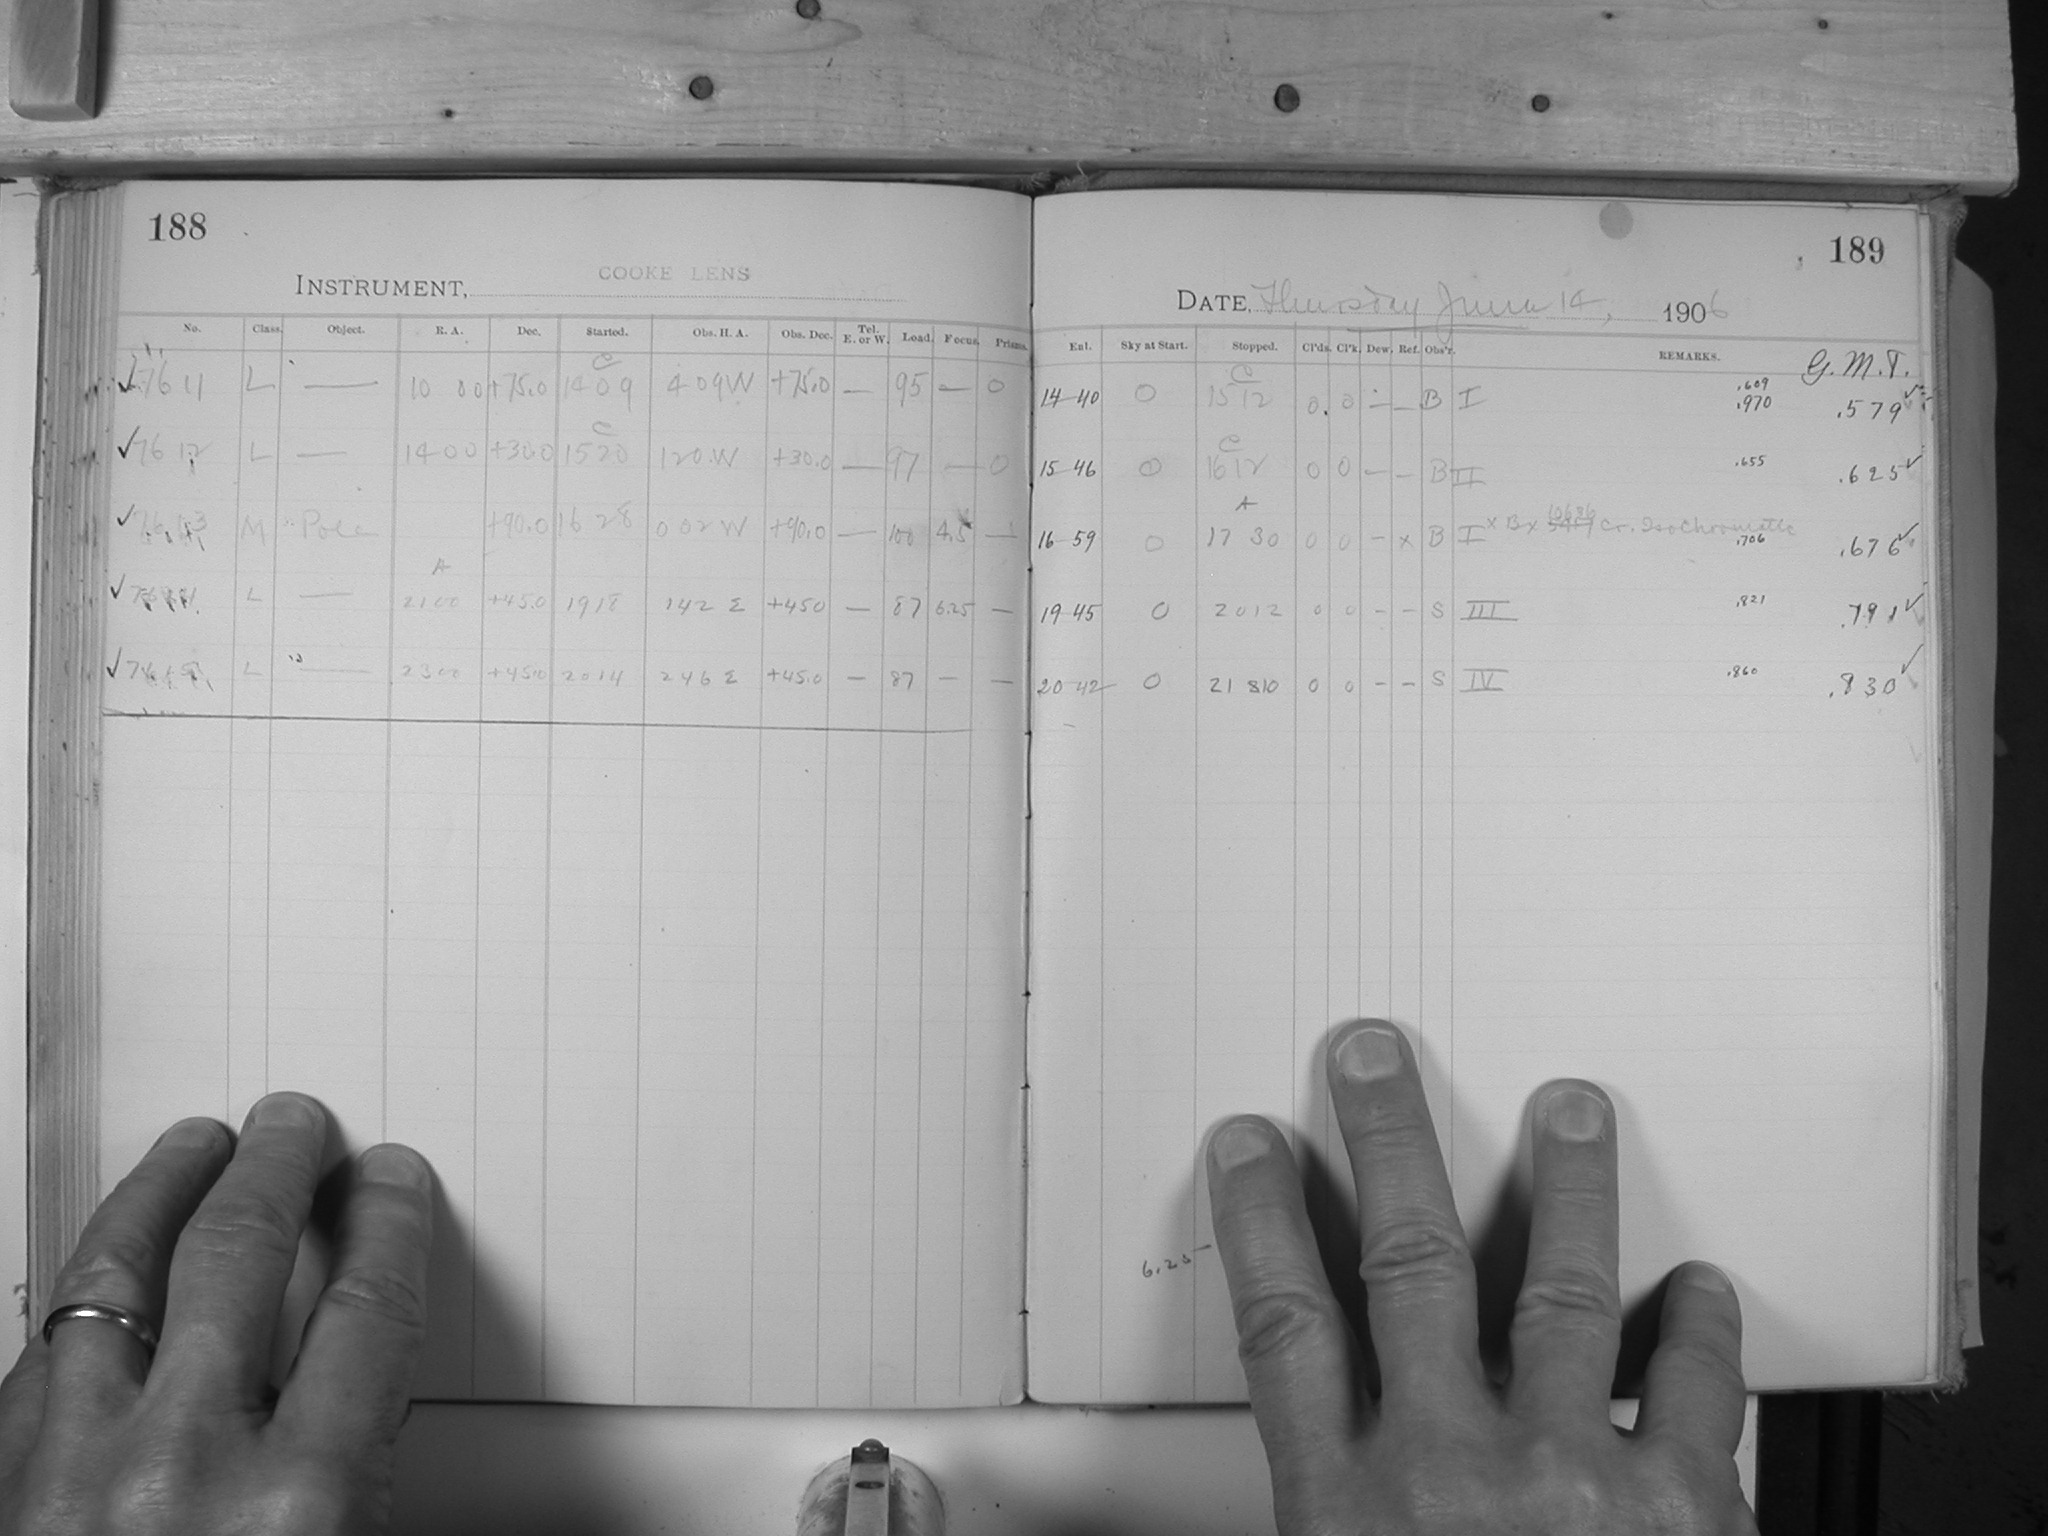 188
INSTRUMENT, COOKE LENS
No. Class. Object. R. A. Dec. Started. Obs. H. A. Obs. Dec. Tel. E. or W. Load. Focus. Prisms.
C
✓7611 L — 10 00 +75.0 1409 4 09 W +75.0 — 95 — 0
C
✓7612 L — 1400 +30.0 1520 1 20 W +30.0 — 97 — 0
✓7613 M Pole +90.0 16 28 0 02 W +90.0 — 100 4.5 —
A
✓ L — 2100 +45.0 1918 142 E +450 — 87 6.25 —
✓ L — 2300 +45.0 2014 246 E +45.0 — 87 — —
189
DATE, Thursday June 14, 1906
Ent. Sky at Start. Stopped. Cl'ds. Cl'k. Dew. Ref. Obs'r. REMARKS. G.M.T.
C
14-40 0 15 12 0 0 — — B I .609 .970 .579 ✓
C
15-46 0 1612 0 0 — — B II .655 .625 ✓
A
16-59 0 17 30 0 0 — x B I x B x 10686 Cr. Isochromatic .706 .676 ✓
19-45 0 2012 0 0 — — S III .821 .791 ✓
20-42 0 21 0 0 — — S IV .860 .830 ✓
6.25